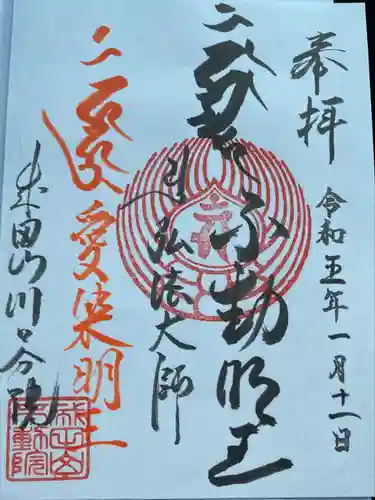 奉拝
令和五年一月十一日
不動明王
弘法大師
愛染明王
成田山川口分院